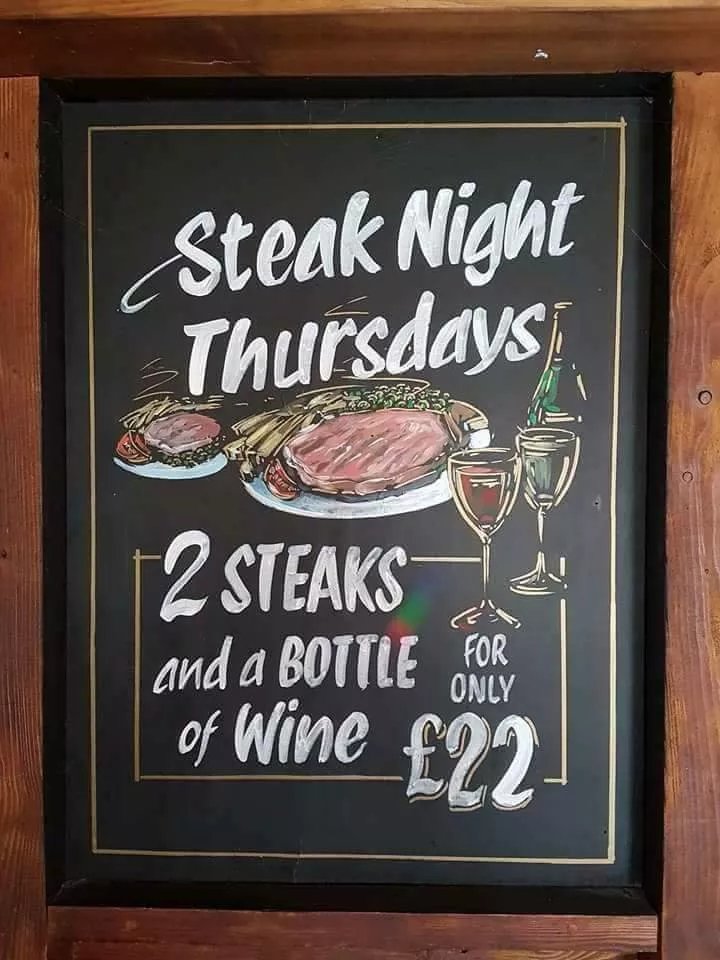 Steak Night
Thursdays
2 STEAKS
and a BOTTLE
of Wine
FOR
ONLY
£22